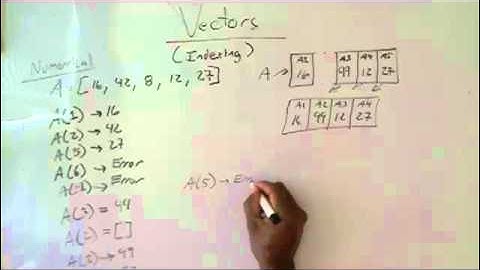 Vectors
(Indexing)
Numerical
A = [16, 42, 8, 12, 27]
A(1) → 16
A(2) → 42
A(5) → 27
A(6) → Error
A(-1) → Error
A(3) = 49
A(2) = []
A(2) → 49
A →
A2 A3 A4 A5
16 99 12 27
A1 A2 A3 A4
16 99 12 27
A(5) → Err